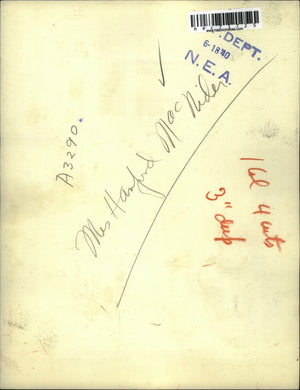 DEPT.
6-1840
N.E.A
A3290.
Mrs Hanford MacNider
1 col 4 cuts
3" deep